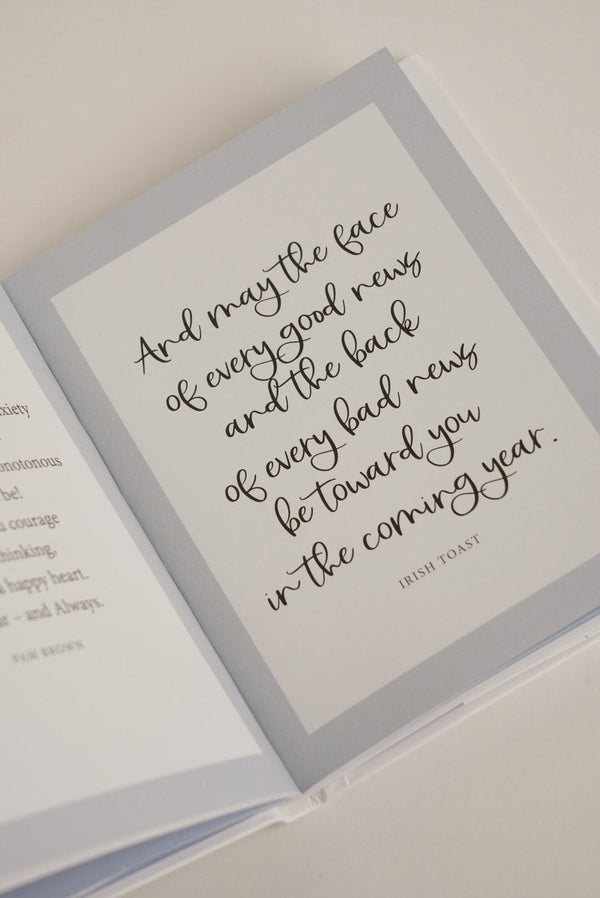 onotonous
be!
u courage
hinking,
a happy heart.
– and Always.
PAM BROWN
And may the face
of every good news
and the back
of every bad news
be toward you
in the coming year.
IRISH TOAST